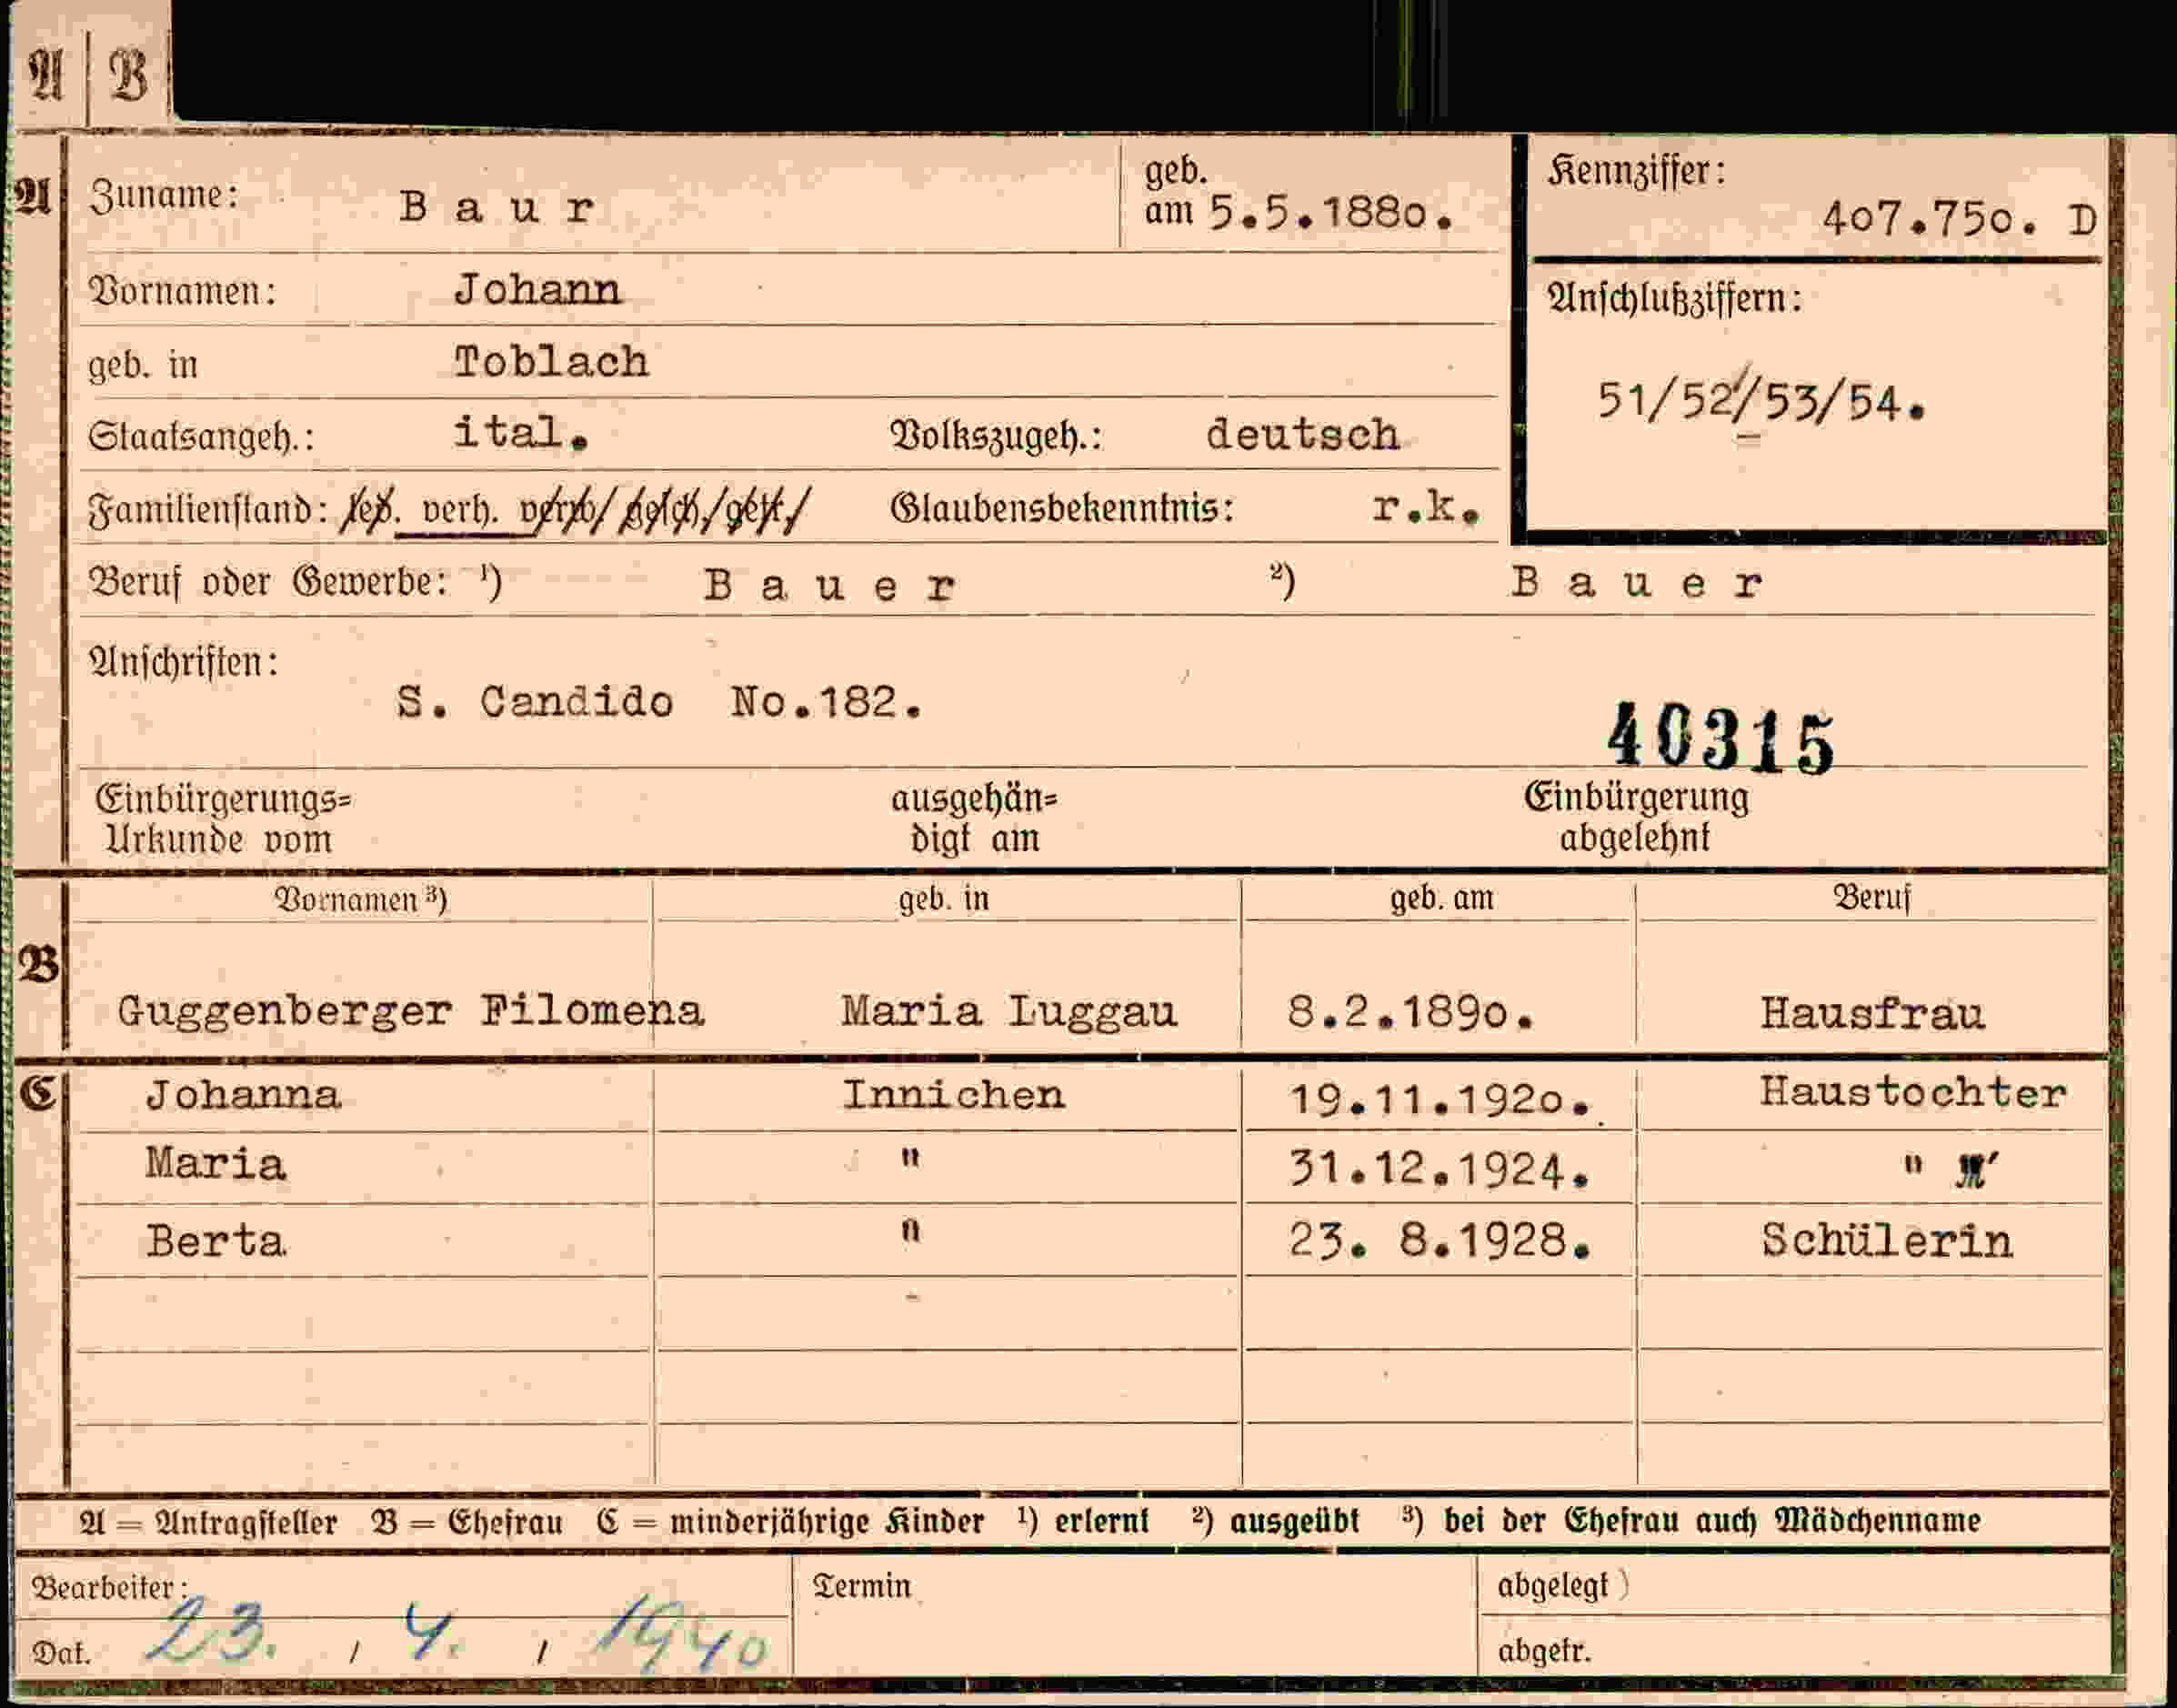 A | B
A Zuname: Baur geb. am 5.5.1880. Kennziffer: 407.750. D
Vornamen: Johann Anschlußziffern:
geb. in Toblach 51/52/53/54.
Staatsangeh.: ital. Volkszugeh.: deutsch
Familienstand: led. verh. verw. gesch. getr. Glaubensbekenntnis: r.k.
Beruf oder Gewerbe: ¹) Bauer ²) Bauer
Anschriften:
S. Candido No.182.
40315
Einbürgerungs= ausgehän= Einbürgerung
Urkunde vom digt am abgelehnt
Vornamen ³) geb. in geb. am Beruf
B
Guggenberger Filomena Maria Luggau 8.2.1890. Hausfrau
C Johanna Innichen 19.11.1920. Haustochter
Maria " 31.12.1924. "
Berta " 23. 8.1928. Schülerin
A = Antragsteller B = Ehefrau C = minderjährige Kinder ¹) erlernt ²) ausgeübt ³) bei der Ehefrau auch Mädchenname
Bearbeiter: Termin abgelegt)
Dat. 23. / 4. / 1940 abgetr.